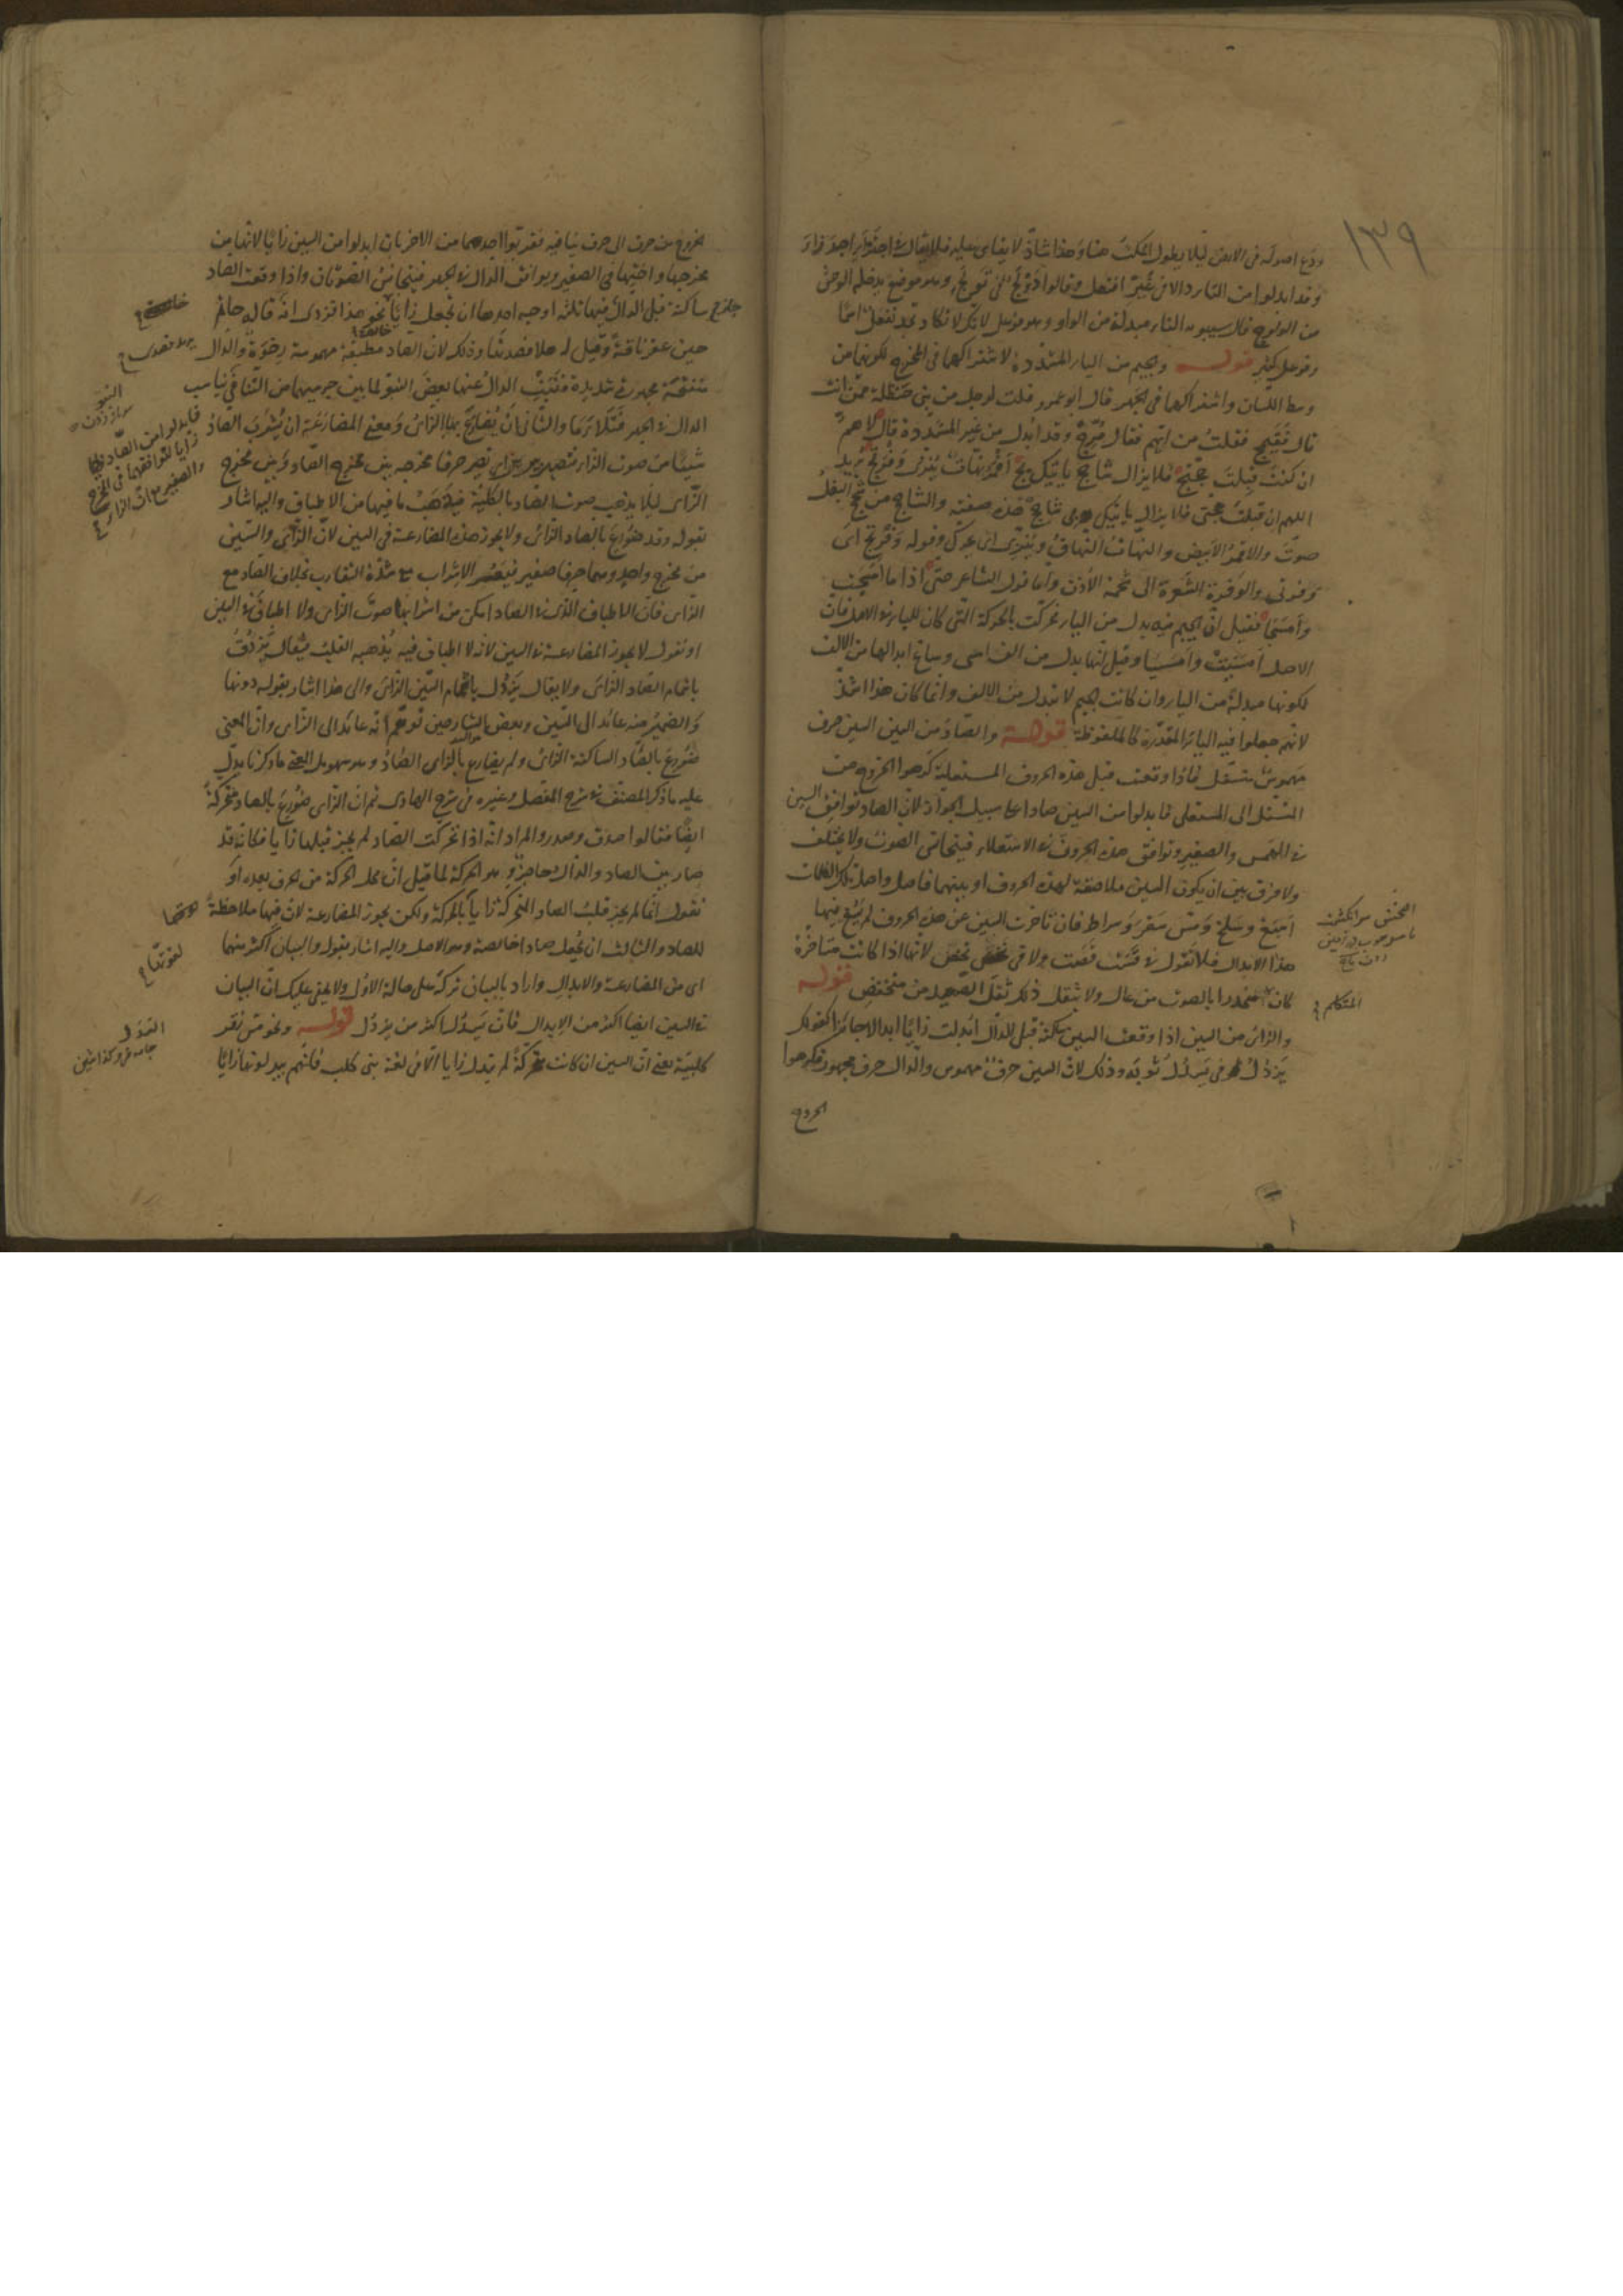 ١٣٩
ودع اصوله فى الارض ليلا يطول المكث هنا وهذا شاذ لا يقاس عليه فلا يقال فى اجترأ اجدرأ
وقد ابدلوا من التاء دالا فى غير افتعل وقالوا دولج فى تولج وهو موضع يدخله الوحش
من الولوج قال سيبويه التاء مبدلة من الواو وهو فوعل لانك لا تكاد تجد تفعل اسما
وفوعل كثير قوله والجيم من الياء المشددة لاشتراكهما فى المخرج لكونهما من
وسط اللسان واشتراكهما فى الجهر قال ابو عمرو قلت لرجل من بنى حنظلة ممن انت
قال فقيمج فقلت من ايهم فقال مرج وقد ابدل من غير المشددة قال لاهم
ان كنت قبلت حجتج فلا يزال شاحج ياتيك بج اقمر نهات ينزى وفرتج يريد
اللهم ان قبلت حجتى فلا يزال ياتيك بى شاحج هذه صفته والشاحج من شحج البغل
صوت والاقمر الابيض والنهات النهاق وينزى اى يحرك وقوله وفرتج اى
وفرتى والوفرة الشعرة الى شحمة الاذن واما قول الشاعر حتى اذا ما امسجت
وامسجا فقيل ان الجيم فيه بدل من الياء تحركت بالحركة التى كان للياء فى الاصل فان
الاصل امسيت وامسيا وقيل انها بدل من الف امسى وساغ ابدالها من الالف
لكونها مبدلة من الياء وان كانت الجيم لا تبدل من الالف وانما كان هذا اشذ
لانهم جعلوا فيه الياء المقدرة كالملفوظة قوله والصاد من السين السين حرف
مهموس متسفل فاذا وقعت قبل هذه الحروف المستعلية كرهوا الخروج من
المتسفل الى المستعلى فابدلوا من السين صادا على سبيل الجواز لان الصاد توافق السين
فى الهمس والصفير وتوافق هذه الحروف فى الاستعلاء فيتجانس الصوت ولا يختلف
ولا فرق بين ان يكون السين ملاصقة لهذه الحروف او بينهما فاصل واصل تلك الكلمات
اسبغ وسلخ ومس سقر وسراط فان تاخرت السين عن هذه الحروف لم يسغ فيها
هذا الابدال فلا تقول فى قست قصت ولا فى بخس بخص لانها اذا كانت متاخرة
كان المتكلم منحدرا بالصوت من عال ولا يثقل ذلك ثقل التصعد من منخفض قوله
والزاى من السين اذا وقعت السين ساكنة قبل الدال ابدلت زايا ابدالا جائزا كقولك
يزدل فى يسدل ثوبه وذلك لان السين حرف مهموس والدال حرف مجهور فكرهوا
الخروج
المتكلم
الخروج من حرف الى حرف ينافيه فقربوا احدهما من الاخر بان ابدلوا من السين زايا لانها من
مخرجها واختها فى الصفير ويوافق الدال فى الجهر فيتجانس الصوتان واذا وقعت الصاد
ساكنة قبل الدال ففيها ثلثة اوجه احدها ان تجعل زايا خالصة نحو هذا فزدى انه قاله حاتم
حين عقر ناقة وقيل له هلا فصدتها وذلك لان الصاد مطبقة مهموسة رخوة والدال
منفتحة مجهورة شديدة فنبت الدال عنها بعض النبو لما بين جرسيهما من التنافى
الدال فى الجهر فتلاءما والثانى ان يضارع بها الزاى ومعنى المضارعة ان يشرب الصاد
شيئا من صوت الزاى فتصير حرفا مخرجه بين مخرج الصاد وبين مخرج
الزاى ليلا يذهب صوت الصاد بالكلية فيذهب ما فيها من الاطباق واليه اشار
بقوله وقد ضورع بالصاد الزاى ولا يجوز هذه المضارعة فى السين لان الزاى والسين
من مخرج واحد وهما حرفا صفير فيعسر الاشراب مع شدة التقارب بخلاف الصاد مع
الزاى فان الاطباق الذى فى الصاد امكن من اشرابها صوت الزاى ولا اطباق فى السين
او نقول لا يجوز المضارعة فى السين لانه لا اطباق فيه يذهبه القلب فيقال يزدق
باشمام الصاد الزاى ولا يقال يزدل باشمام السين الزاى والى هذا اشار بقوله دونها
والضمير منه عائد الى السين وبعض الشارحين توهم انه عائد الى الزاى وان المعنى
ضورع بالصاد الساكنة الزاى ولم يضارع بالزاى الصاد وهو سهو بل المعنى ما ذكرنا يدل
عليه ما ذكر المصنف فى شرح المفصل وغيره من شرح الهادى ثم ان الزاى ضورع بالصاد متحركة
ايضا فقالوا صدق وصدر والمراد انه اذا تحركت الصاد لم يجز قبلها زايا فكانه قد
صار بين الصاد والدال حاجز وهو الحركة لما قيل ان محل الحركة من الحرف بعده او
نقول انما لم يجز قلب الصاد المتحركة زايا لقوتها بالحركة ولكن يجوز المضارعة لان فيها ملاحظة
للصاد والثالث ان يجعل صادا خالصة وهو الاصل واليه اشار بقوله والبيان اكثر منهما
اى من المضارعة والابدال واراد بالبيان تركه على حالة الاول ولا يخفى عليك ان البيان
فى السين ايضا اكثر من الابدال فان يسدل اكثر من يزدل قوله ونحو مس زقر
كلبية يعنى ان السين ان كانت متحركة لم يبدل زايا الا فى لغة بنى كلب فانهم يبدلونها زايا
فابدلوا من الصاد
زايا لتوافقهما فى المخرج
والصفير
لقوتها